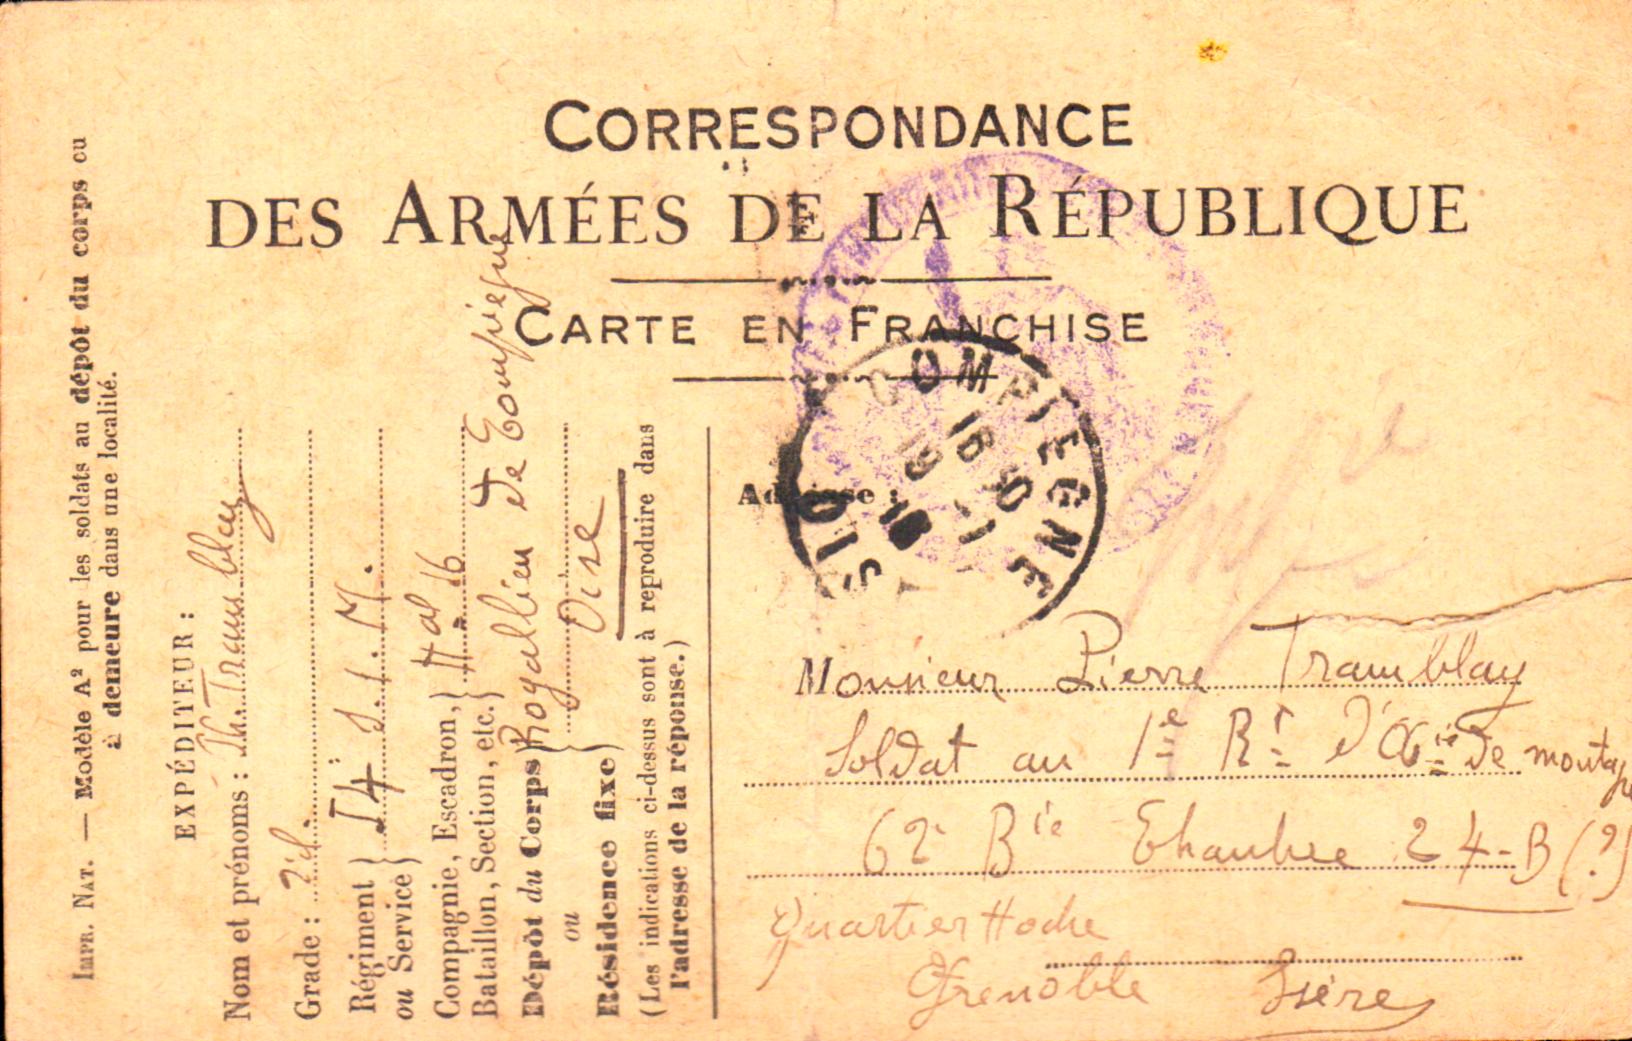 CORRESPONDANCE
DES ARMÉES DE LA RÉPUBLIQUE
CARTE EN FRANCHISE
IMPR. NAT. — Modèle A² pour les soldats au dépôt du corps ou
à demeure dans une localité.
EXPÉDITEUR :
Nom et prénoms : Th. Tramblay
Grade :
Régiment
ou Service
S. I. M.
Compagnie, Escadron,
Bataillon, Section, etc.
16
Dépôt du Corps
ou
Résidence fixe
Royallieu de Compiègne
Oise
(Les indications ci-dessus sont à reproduire dans
l'adresse de la réponse.)
COMPIEGNE
OISE
Adresse :
Monsieur Pierre Tramblay
Soldat au 1e Rt d'Aie de montagne
62e Bie Chambre 24-B (?)
Quartier Hoche
Grenoble Isère